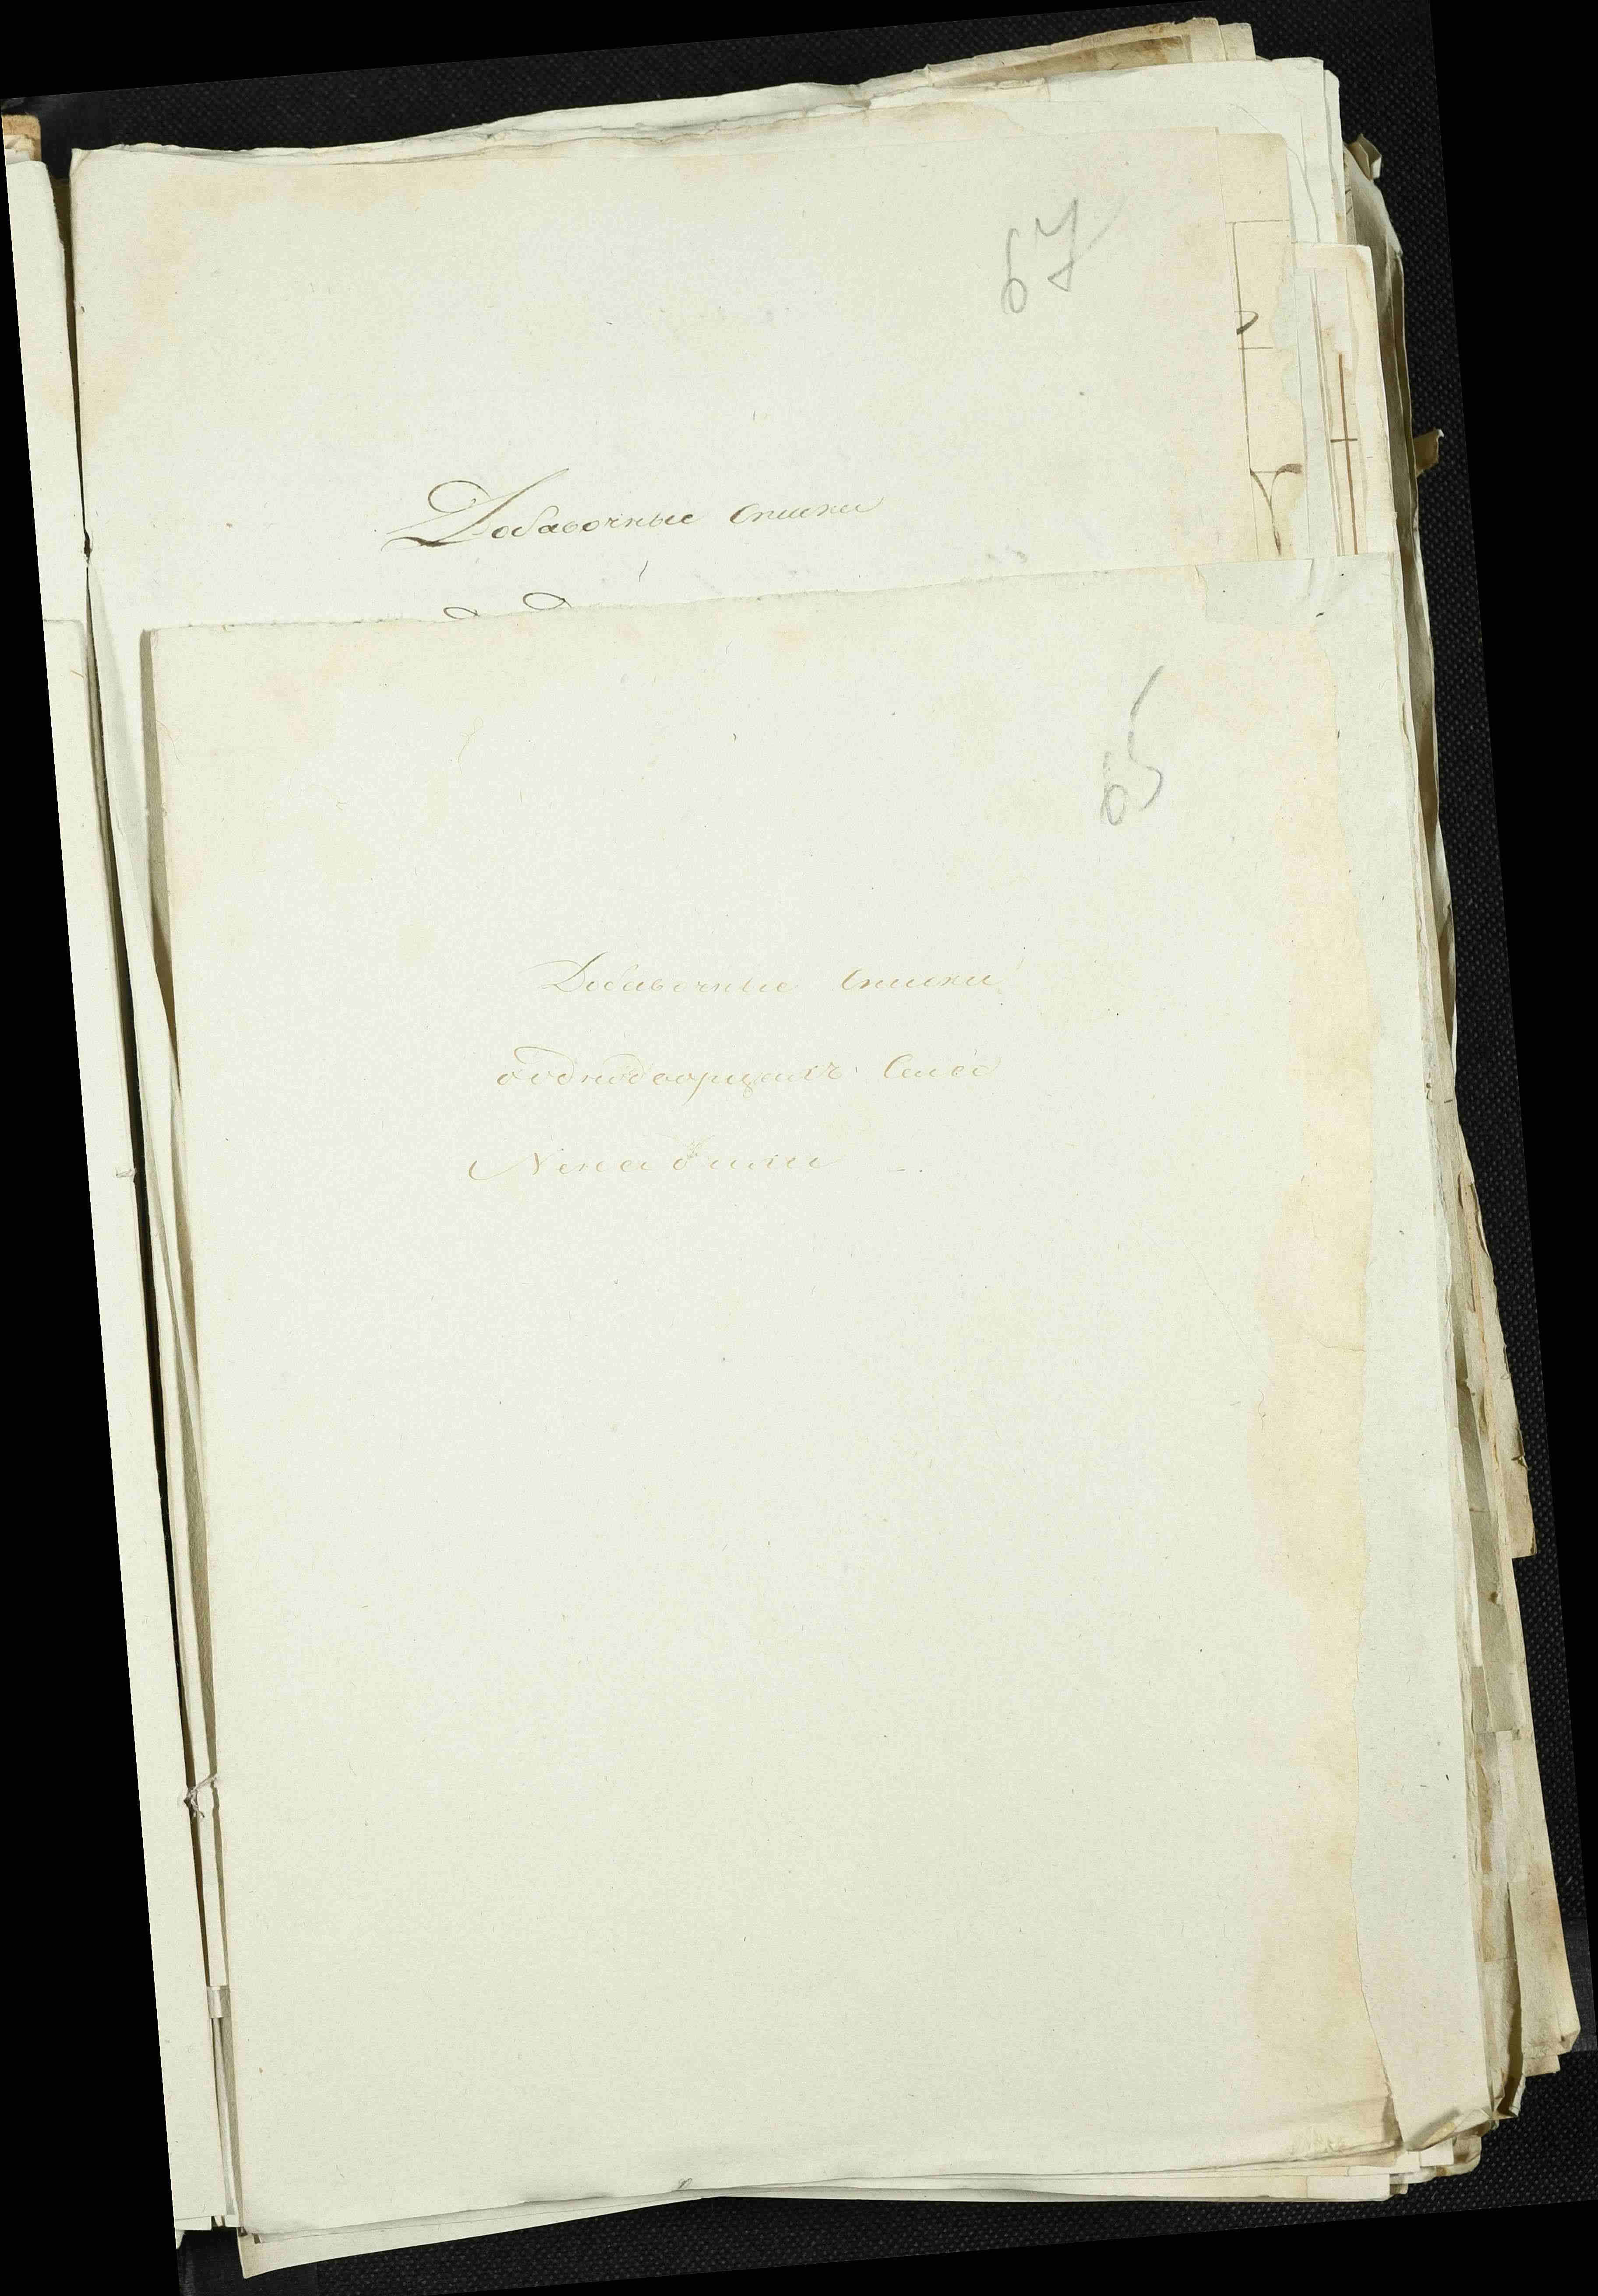 67
Добавочные списки
65
Добавочные списки
о однодворцахъ села